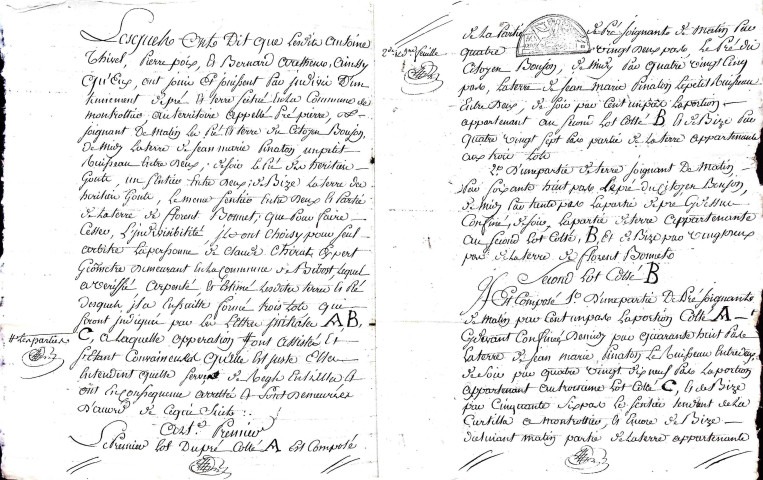 Lesquels ont dit que lesdits antoine
thivel, Pierre poix, et Bernard coutteuse, ainsy
qu'Eux, ont joui et jouissent par indivis d'un
tennement de pré et terre scitué en la Commune de
montrottier, au territoire appellé Pré pierre, &
joignant de Matin le Pré et terre de Citoyen Bouson,
de midy la terre de jean marie pinaton un petit
Ruisseau Entre deux; de soir le Pré des heritiers
Goute, un sentier Entre deux; de Bize la terre des
heritiers Goute, le meme sentier Entre deux et partie
de la terre de florent Bonnet; que pour faire
Cesser L'indivisibilité ils ont choisy pour seul
arbitre la personne de claude chirat, Expert
Géometre demeurant en la commune de Bibost, lequel
a verifié arpenté et Estimé lesdites terre et Pré
desquels il a Ensuitte formé trois lots qui
seront indiqué par les Lettres initiale A, B,
#les parties
C, a laquelle opperation # ont assisté Et
s'étant Convaincus qu'elle Est juste Elles
Entendent qu'elle serve de Regle Entr'elles Et
ont en consequence arretté et sont demeurées
D'accord de ce qui suit :
Art.e Premier
Le Premier lot du pré Cotté A Est Composé
2de et dre feuille
de la Partie de Pré joignante de matin par
quatre vingt deux pas le Pré du
Citoyen Bouson, de midy par quatre vingt cinq
pas, la terre de jean marie Pinaton le petit Ruisseau
Entre deux; de soir par Cent un pas la portion
appartenant au second lot Cotté B et de Bize par
quatre vingt sept pas partie de la terre appartenante
aux trois lots
2o D'une partie de terre joignant de Matin,
par soixante huit pas le pré du Citoyen Bouson,
de midy par trente pas la partie de pré Cy dessus
Confiné, de soir, la partie de terre appartenante
au second lot Cotté, B, Et de Bize par vingt deux
pas de la terre de florent Bonnet
Second lot Cotté B
Il Est Composé 1o D'une partie de Pré joignante
de matin par Cent un pas la portion Cotté A
Cy devant Confiné de midy par quarante huit pas
la terre de Jean marie, Pinaton le Ruisseau Entre deux,
de soir par quatre vingt dix neuf pas la portion
appartenant au troisieme lot Cotté C, et de Bize
par Cinquante six pas le sentier tendant de la
Curtilla a montrottier, et Encore de Bize
declinant matin partie de la terre appartenante